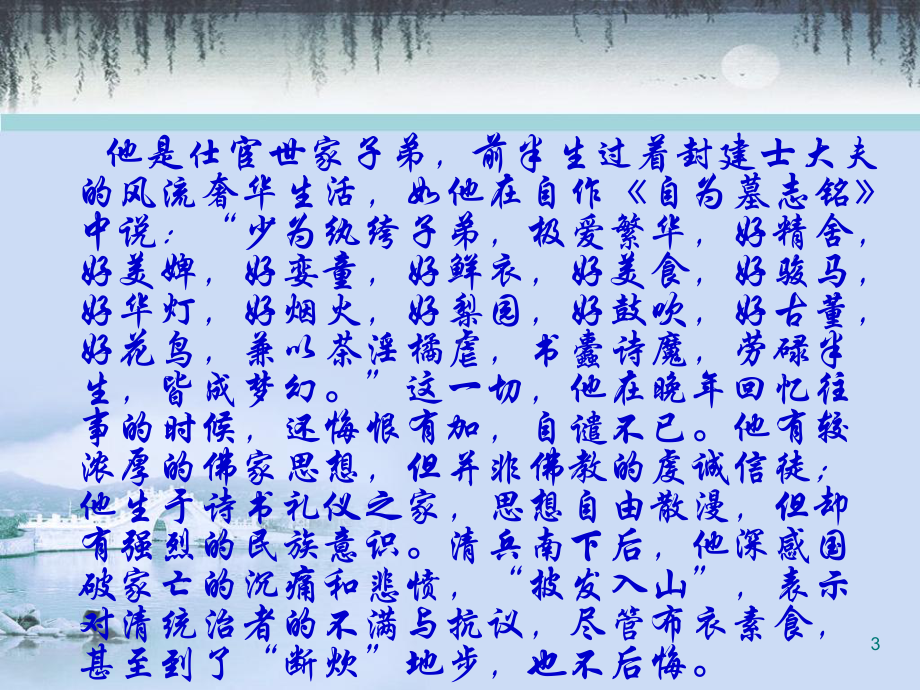 他是仕宦世家子弟，前半生过着封建士大夫
的风流奢华生活，如他在自作《自为墓志铭》
中说：“少为纨绔子弟，极爱繁华，好精舍，
好美婢，好娈童，好鲜衣，好美食，好骏马，
好华灯，好烟火，好梨园，好鼓吹，好古董，
好花鸟，兼以茶淫橘虐，书蠹诗魔，劳碌半
生，皆成梦幻。”这一切，他在晚年回忆往
事的时候，还悔恨有加，自谴不已。他有较
浓厚的佛家思想，但并非佛教的虔诚信徒；
他生于诗书礼仪之家，思想自由散漫，但却
有强烈的民族意识。清兵南下后，他深感国
破家亡的沉痛和悲愤，“披发入山”，表示
对清统治者的不满与抗议，尽管布衣素食，
甚至到了“断炊”地步，也不后悔。
3